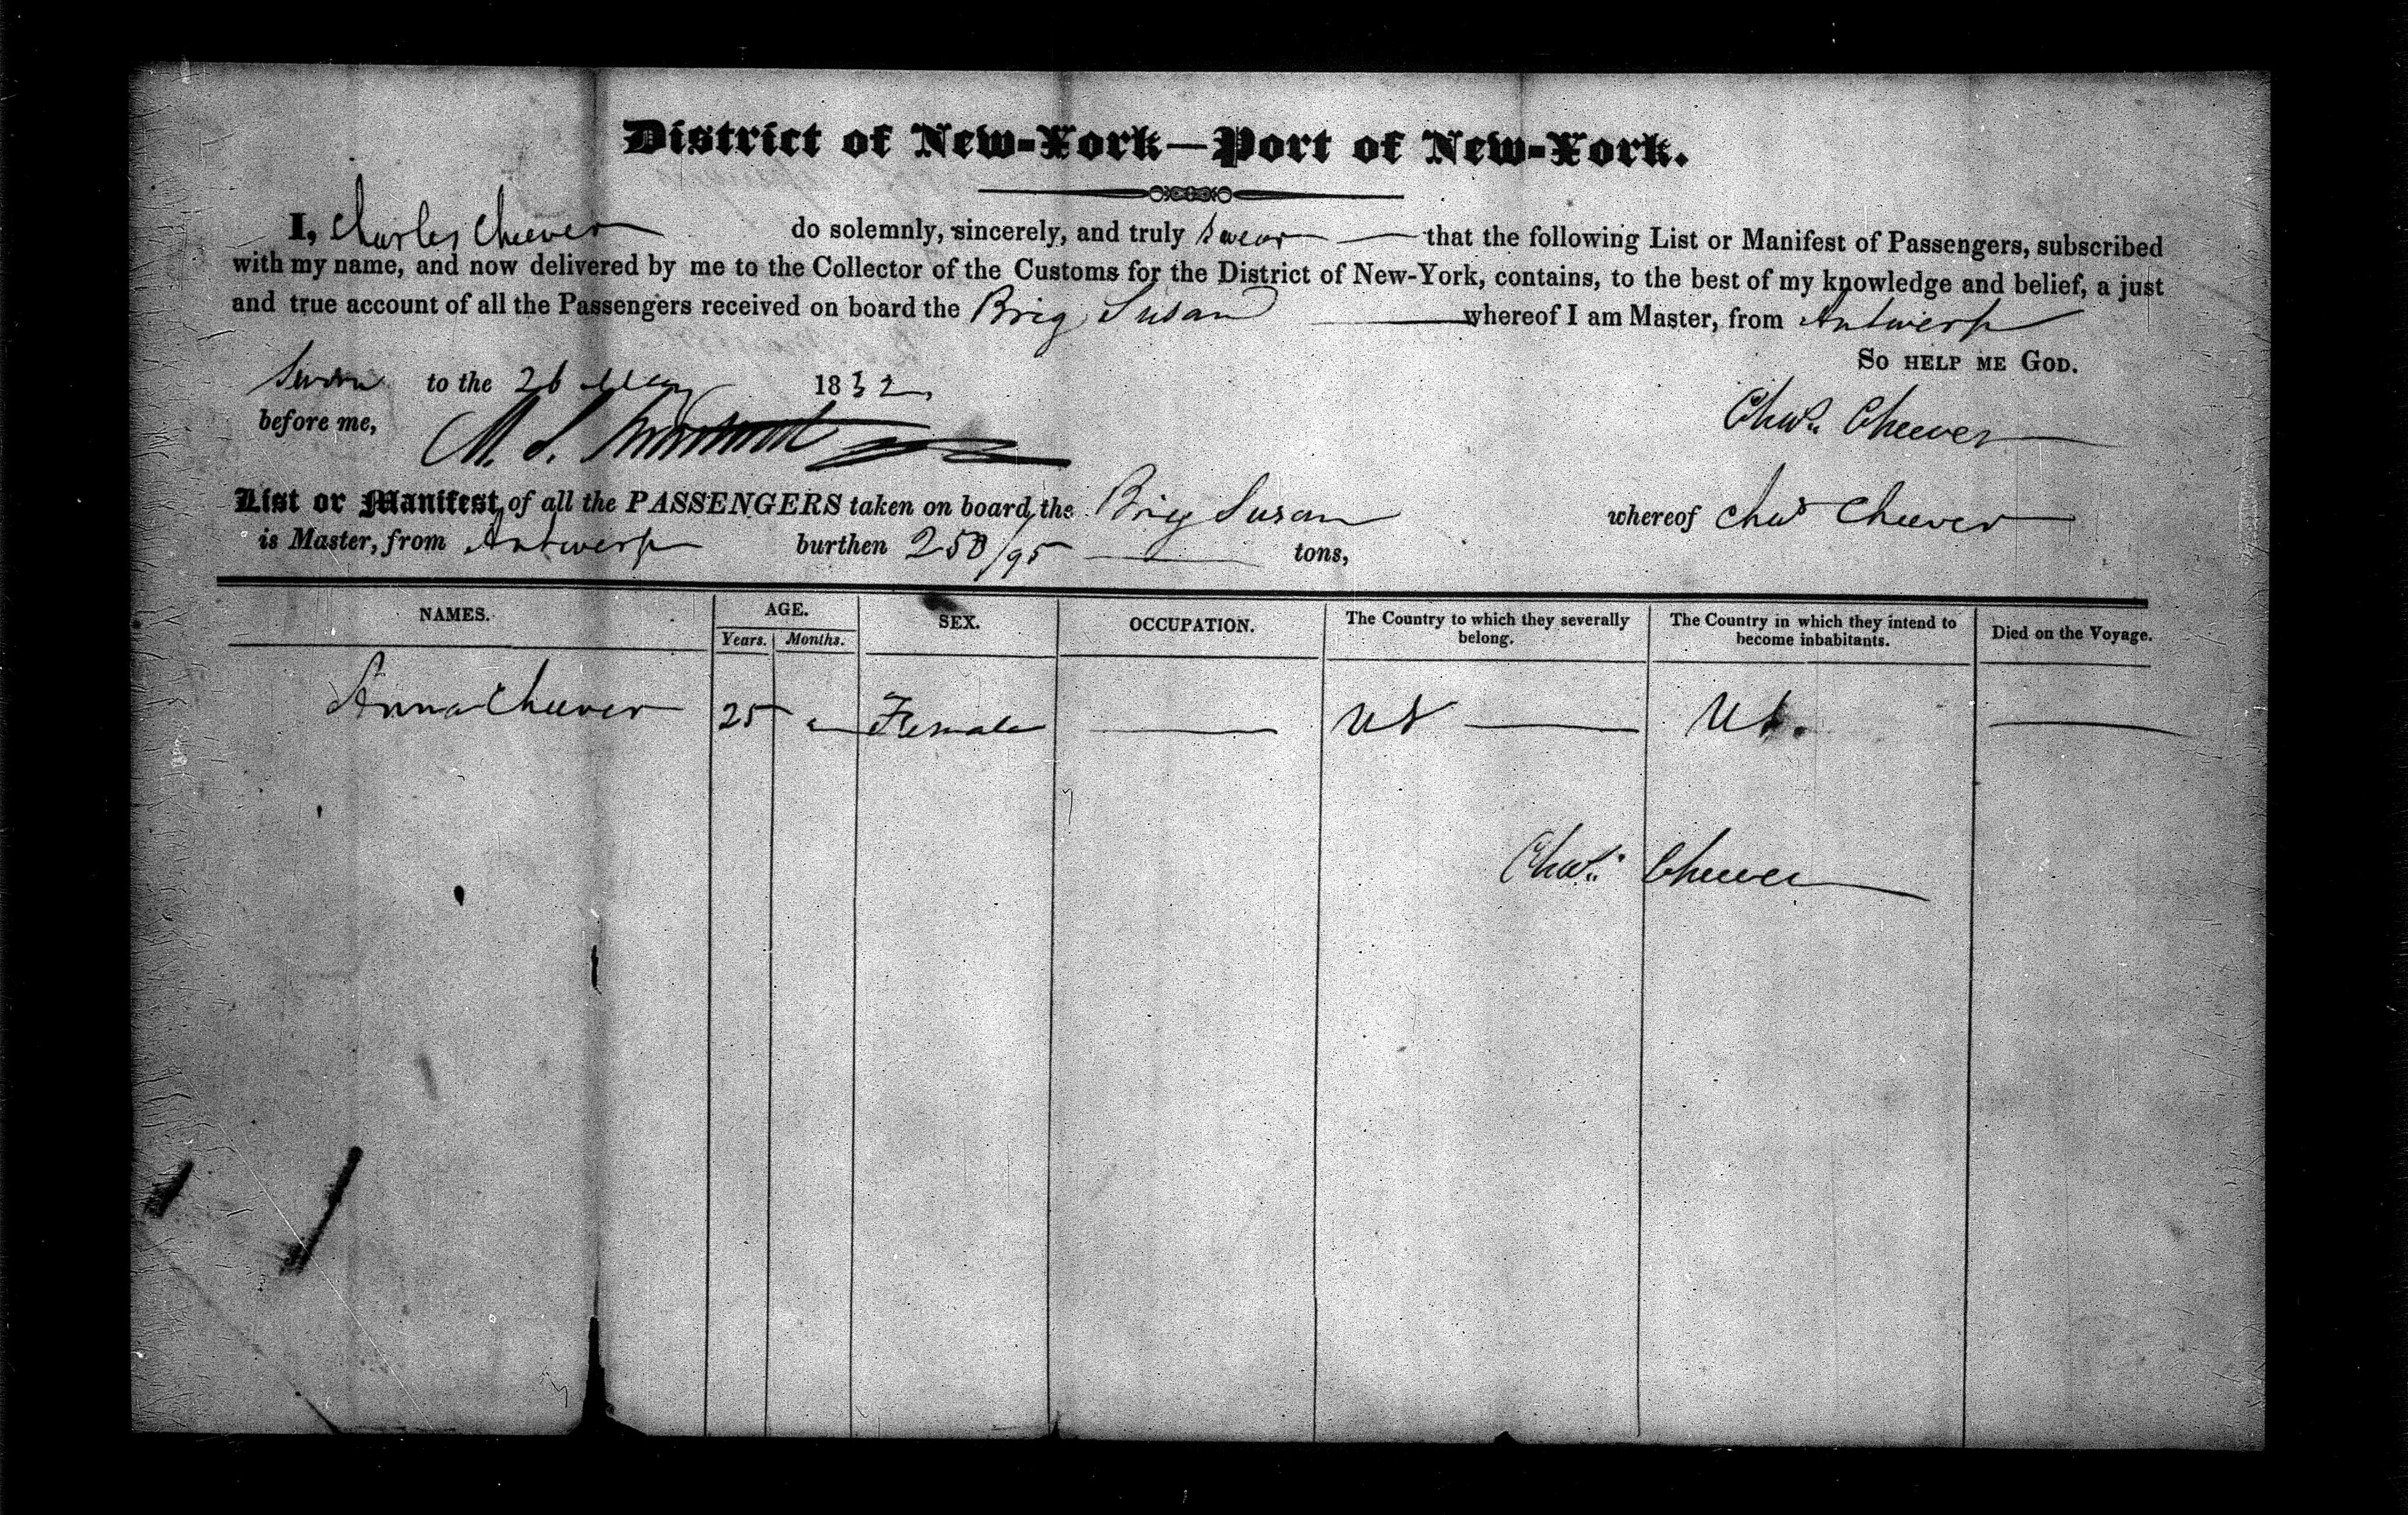 District of New-York—Port of New-York.
I, Charles Cheever do solemnly, sincerely, and truly swear — that the following List or Manifest of Passengers, subscribed
with my name, and now delivered by me to the Collector of the Customs for the District of New-York, contains, to the best of my knowledge and belief, a just
and true account of all the Passengers received on board the Brig Susan — whereof I am Master, from Antwerp
So help me God.
Sworn to the 26 May 1832
before me,
Chas. Cheever
List or Manifest, of all the PASSENGERS taken on board, the Brig Susan whereof Chas Cheever
is Master, from Antwerp burthen 250/95 — tons,
NAMES. AGE. SEX. OCCUPATION. The Country to which they severally belong. The Country in which they intend to become inhabitants. Died on the Voyage.
Years. Months.
Anna Cheever 25 Female — US — US. —
Chas. Cheever